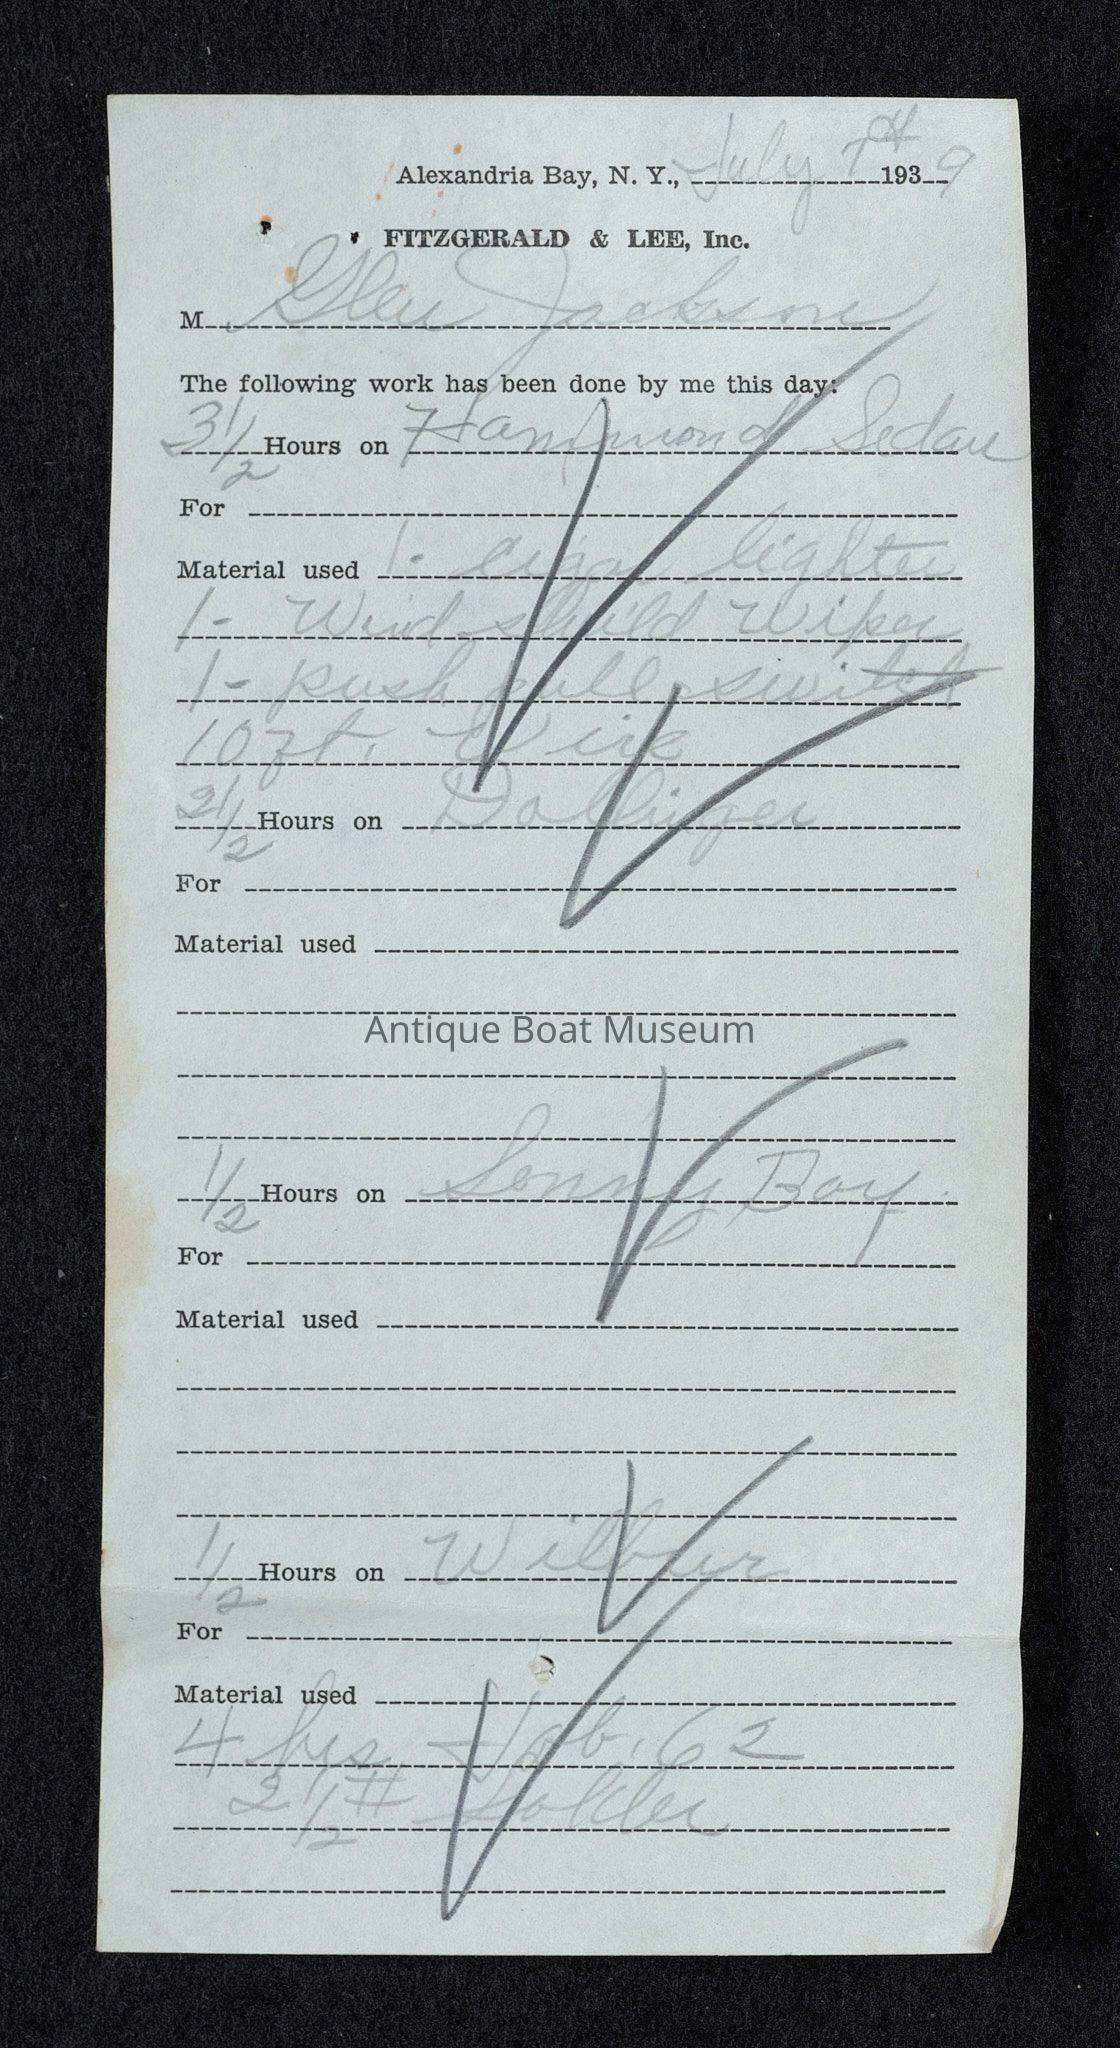 Alexandria Bay, N. Y., July 7th 1939
FITZGERALD & LEE, Inc.
M Glen Jackson
The following work has been done by me this day:
3 1/2 Hours on Hammond Sedan
For
Material used 1 - cigar lighter
1 - Wind shield Wiper
1 - push pull switch
10 ft. Wire
2 1/2 Hours on Dollinger
For
Material used
Antique Boat Museum
1/2 Hours on Sonny Boy
For
Material used
1/2 Hours on Wilbur
For
Material used
4 hrs Job. 62
2 1/2 # Solder